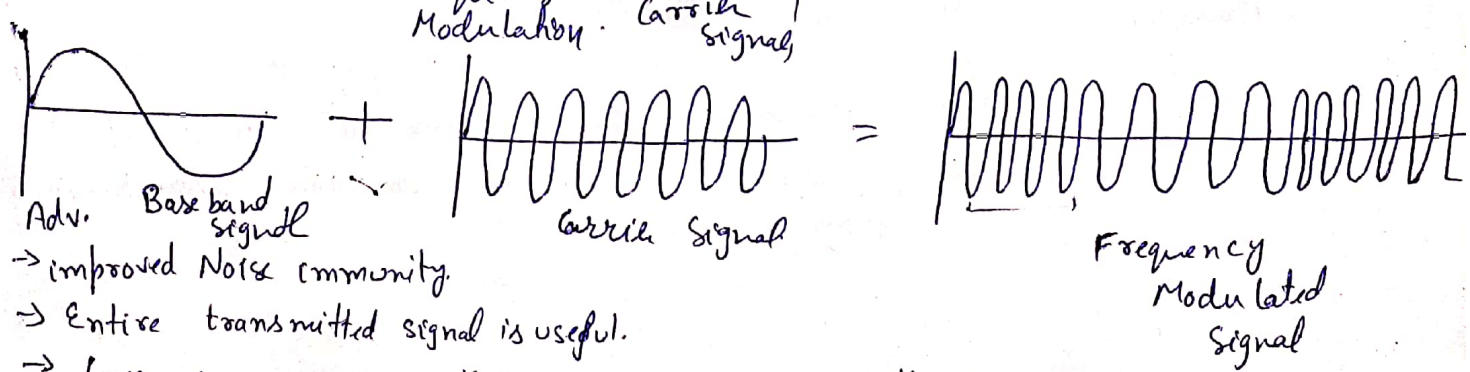 Modulation. Carrier
Signal,
+
=
Baseband
Signal
Carrier Signal
Frequency
Modulated
Signal
Adv.
→ improved Noise immunity.
→ Entire transmitted signal is useful.
→